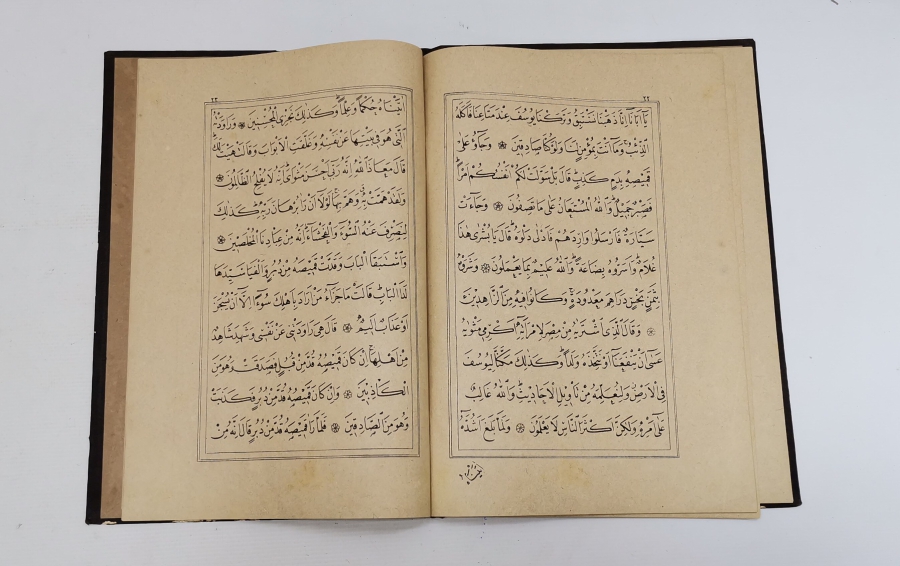 ٢٢
يَٓا اَبَانَٓا اِنَّا ذَهَبْنَا نَسْتَبِقُ وَتَرَكْنَا يُوسُفَ عِنْدَ مَتَاعِنَا فَاَكَلَهُ
الذِّئْبُ وَمَٓا اَنْتَ بِمُؤْمِنٍ لَنَا وَلَوْ كُنَّا صَادِقِينَ ۞ وَجَٓاؤُ عَلٰى
قَمِيصِهٖ بِدَمٍ كَذِبٍ قَالَ بَلْ سَوَّلَتْ لَكُمْ اَنْفُسُكُمْ اَمْرًا
فَصَبْرٌ جَمِيلٌ وَاللّٰهُ الْمُسْتَعَانُ عَلٰى مَا تَصِفُونَ ۞ وَجَٓاءَتْ
سَيَّارَةٌ فَاَرْسَلُوا وَارِدَهُمْ فَاَدْلٰى دَلْوَهُ قَالَ يَا بُشْرٰى هٰذَا
غُلَامٌ وَاَسَرُّوهُ بِضَاعَةً وَاللّٰهُ عَلِيمٌ بِمَا يَعْمَلُونَ ۞ وَشَرَوْهُ
بِثَمَنٍ بَخْسٍ دَرَاهِمَ مَعْدُودَةٍ وَكَانُوا فِيهِ مِنَ الزَّاهِدِينَ
۞ وَقَالَ الَّذِي اشْتَرٰيهُ مِنْ مِصْرَ لِامْرَاَتِهٖٓ اَكْرِمِي مَثْوٰيهُ
عَسٰٓى اَنْ يَنْفَعَنَٓا اَوْ نَتَّخِذَهُ وَلَدًا وَكَذٰلِكَ مَكَّنَّا لِيُوسُفَ
فِي الْاَرْضِ وَلِنُعَلِّمَهُ مِنْ تَأْوِيلِ الْاَحَادِيثِ وَاللّٰهُ غَالِبٌ
عَلٰٓى اَمْرِهٖ وَلٰكِنَّ اَكْثَرَ النَّاسِ لَا يَعْلَمُونَ ۞ وَلَمَّا بَلَغَ اَشُدَّهُٓ
٢٣
اٰتَيْنَاهُ حُكْمًا وَعِلْمًا وَكَذٰلِكَ نَجْزِي الْمُحْسِنِينَ ۞ وَرَاوَدَتْهُ
الَّتِي هُوَ فِي بَيْتِهَا عَنْ نَفْسِهٖ وَغَلَّقَتِ الْاَبْوَابَ وَقَالَتْ هَيْتَ لَكَ
قَالَ مَعَاذَ اللّٰهِ اِنَّهُ رَبِّٓي اَحْسَنَ مَثْوَايَ اِنَّهُ لَا يُفْلِحُ الظَّالِمُونَ ۞
وَلَقَدْ هَمَّتْ بِهٖ وَهَمَّ بِهَا لَوْلَٓا اَنْ رَاٰ بُرْهَانَ رَبِّهٖ كَذٰلِكَ
لِنَصْرِفَ عَنْهُ السُّٓوءَ وَالْفَحْشَٓاءَ اِنَّهُ مِنْ عِبَادِنَا الْمُخْلَصِينَ ۞
وَاسْتَبَقَا الْبَابَ وَقَدَّتْ قَمِيصَهُ مِنْ دُبُرٍ وَاَلْفَيَا سَيِّدَهَا
لَدَا الْبَابِ قَالَتْ مَا جَزَٓاءُ مَنْ اَرَادَ بِاَهْلِكَ سُٓوءًا اِلَّٓا اَنْ يُسْجَنَ
اَوْ عَذَابٌ اَلِيمٌ ۞ قَالَ هِيَ رَاوَدَتْنِي عَنْ نَفْسِي وَشَهِدَ شَاهِدٌ
مِنْ اَهْلِهَا اِنْ كَانَ قَمِيصُهُ قُدَّ مِنْ قُبُلٍ فَصَدَقَتْ وَهُوَ مِنَ
الْكَاذِبِينَ ۞ وَاِنْ كَانَ قَمِيصُهُ قُدَّ مِنْ دُبُرٍ فَكَذَبَتْ
وَهُوَ مِنَ الصَّادِقِينَ ۞ فَلَمَّا رَاٰ قَمِيصَهُ قُدَّ مِنْ دُبُرٍ قَالَ اِنَّهُ مِنْ